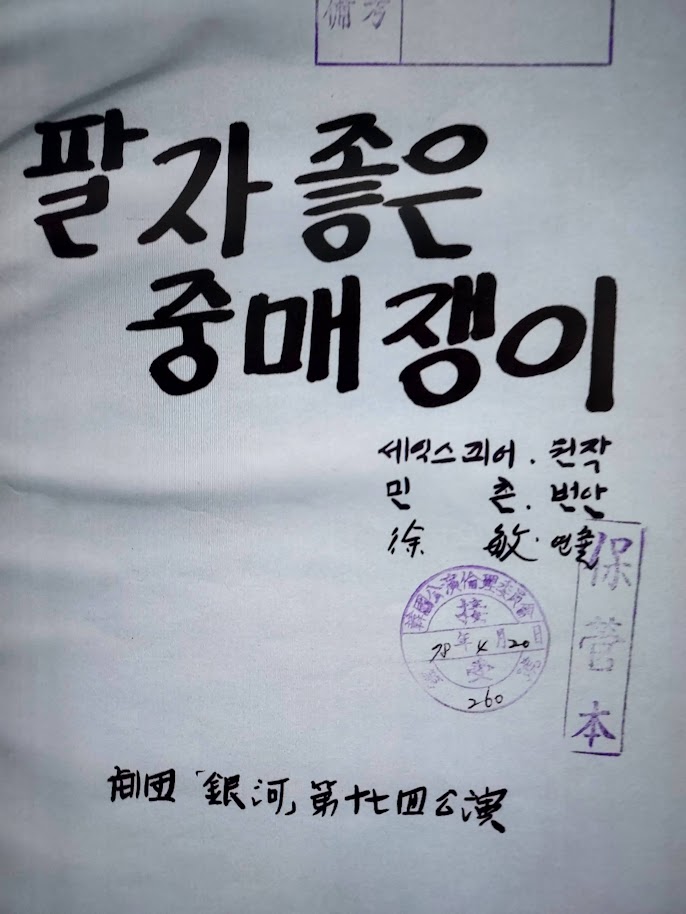 備考
팔자좋은
중매쟁이
세익스피어. 원작
민 촌. 번안
徐 敏. 연출
保管本
韓國公演倫理委員會
接
78年 4月 20日
受
260
劇団「銀河」第十七回公演